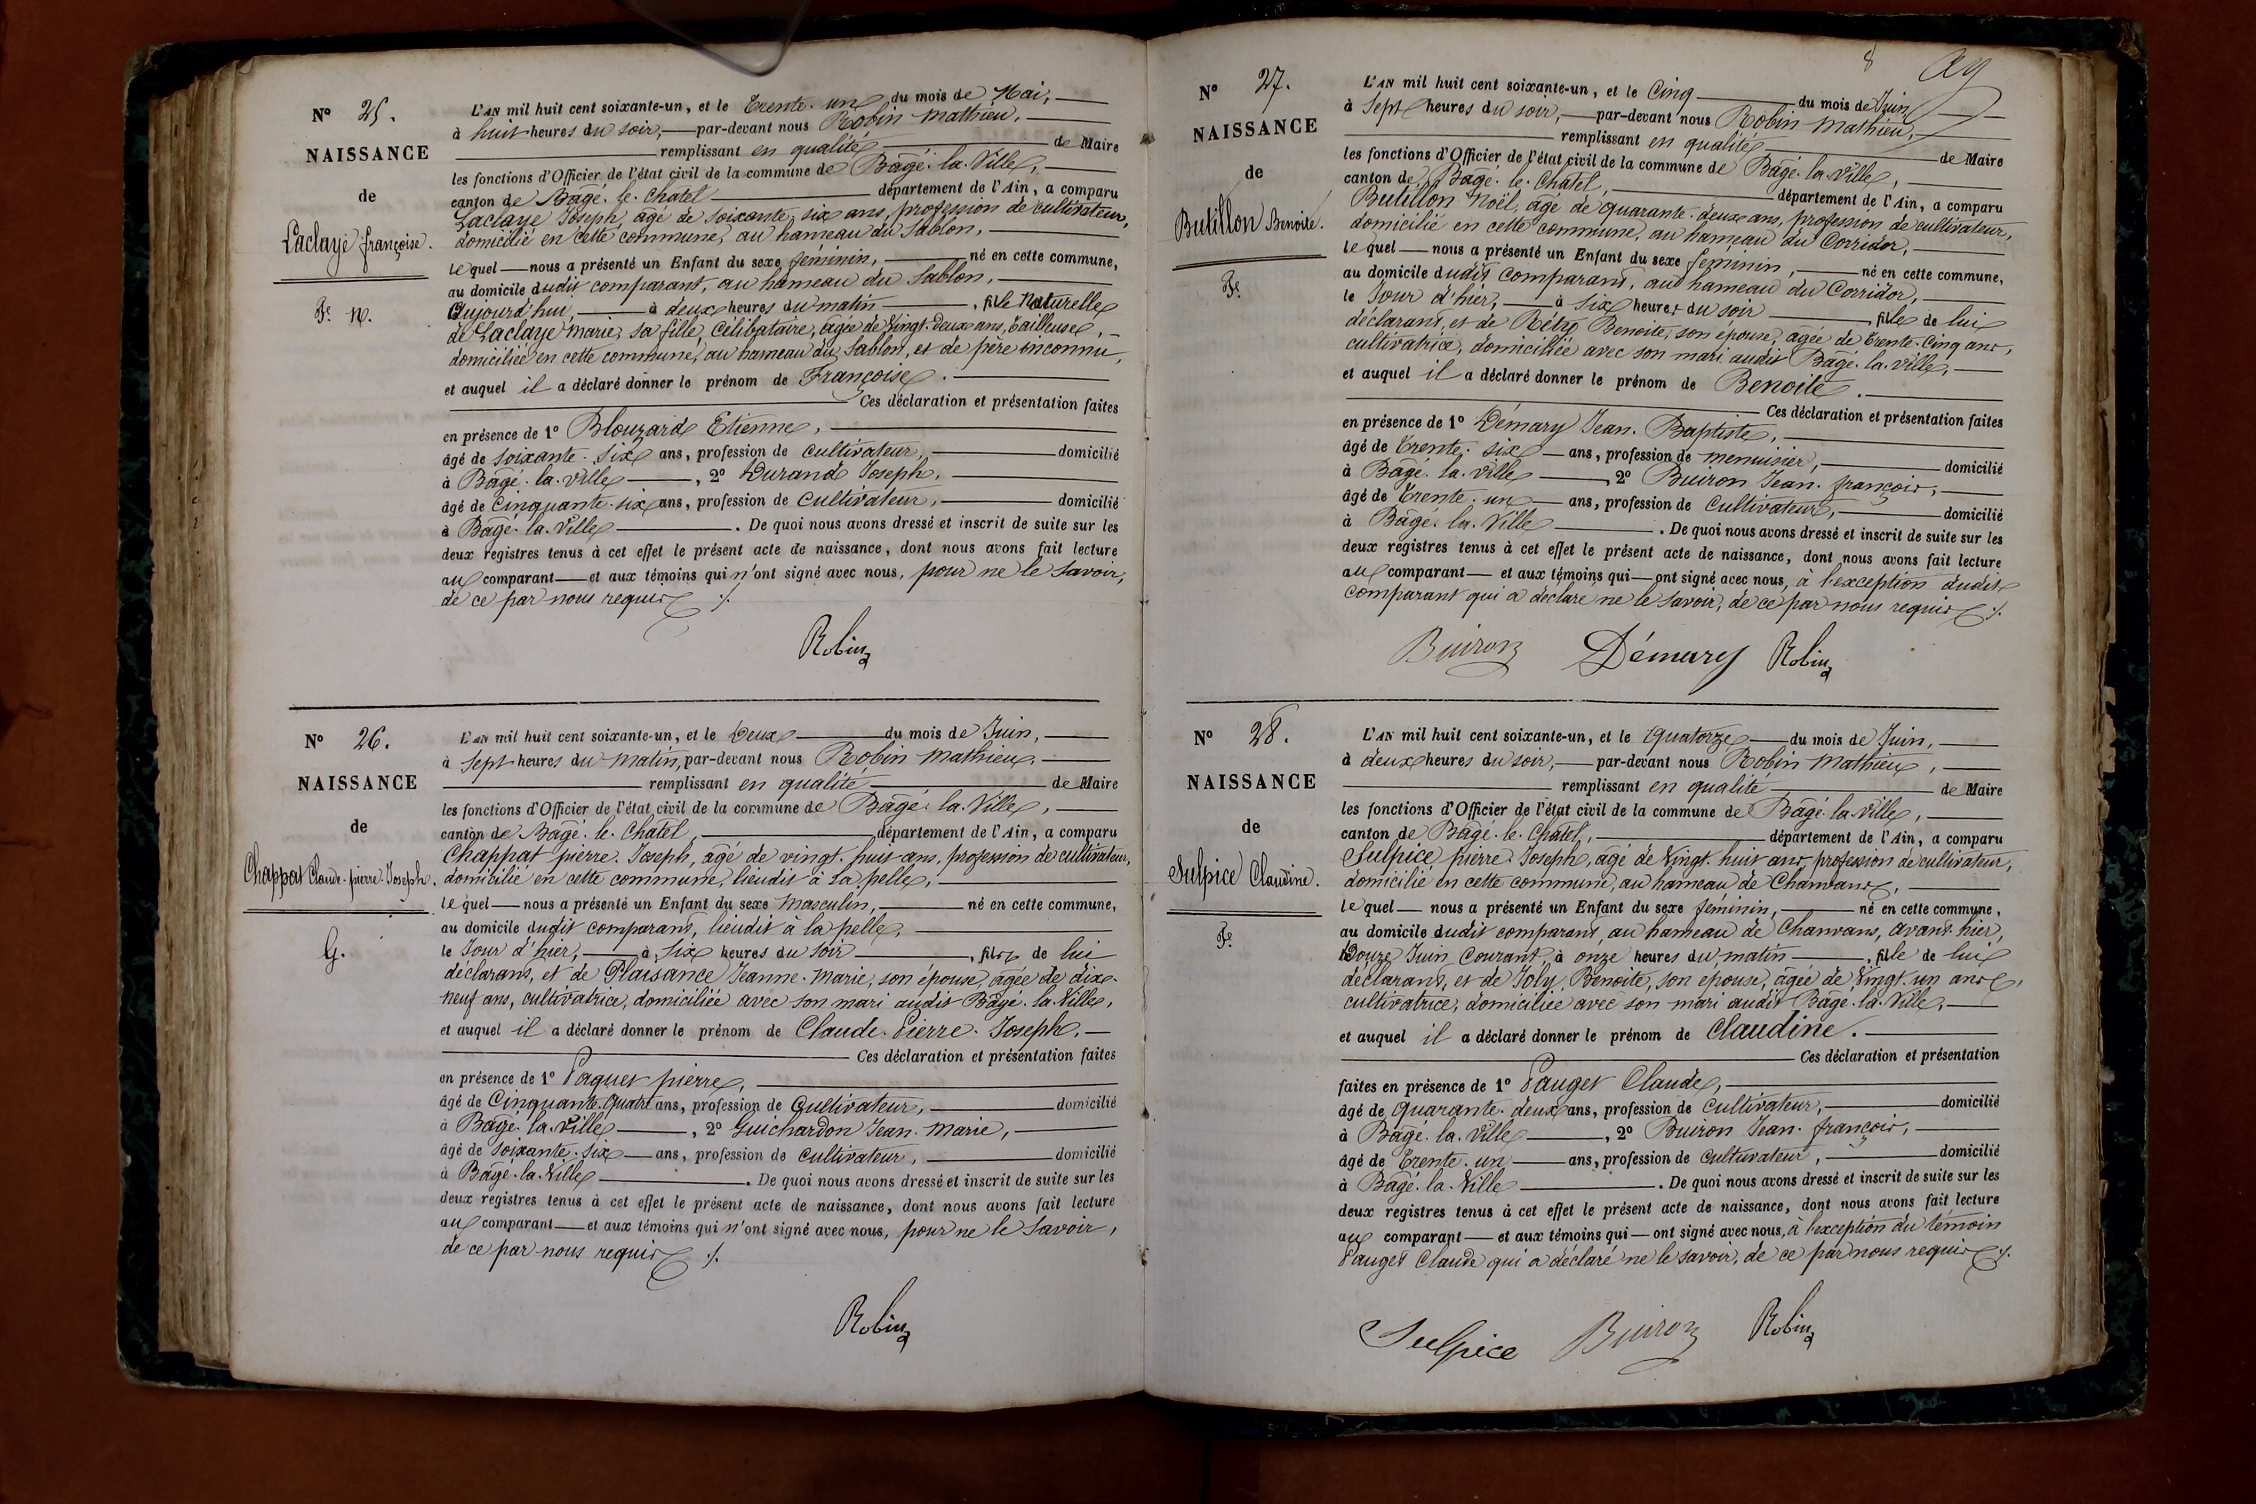 N° 25.
NAISSANCE
de
Laclaye françoise.
Fe. N.
L'AN mil huit cent soixante-un, et le Trente-un du mois de Mai,
à huit heures du soir, par-devant nous Robin Mathieu,
remplissant en qualité de Maire
les fonctions d'Officier de l'état civil de la commune de Bâgé-la-Ville,
canton de Bâgé-le-Chatel département de l'Ain, a comparu
Laclaye Joseph, âgé de soixante-six ans, profession de cultivateur,
domicilié en cette commune, au hameau du Sablon,
lequel nous a présenté un Enfant du sexe féminin, né en cette commune,
au domicile dudit comparant, au hameau du Sablon,
Aujourd'hui, à deux heures du matin, fille Naturelle
de Laclaye Marie, sa fille, Célibataire, âgée de Vingt-deux ans, Tailleuse,
domiciliée en cette commune, au hameau du Sablon, et de père inconnu,
et auquel il a déclaré donner le prénom de Françoise.
Ces déclaration et présentation faites
en présence de 1° Blouzard Etienne,
âgé de soixante-six ans, profession de cultivateur, domicilié
à Bâgé-la-Ville, 2° Durand Joseph,
âgé de Cinquante-six ans, profession de Cultivateur, domicilié
à Bâgé-la-Ville. De quoi nous avons dressé et inscrit de suite sur les
deux registres tenus à cet effet le présent acte de naissance, dont nous avons fait lecture
au comparant et aux témoins qui n'ont signé avec nous, pour ne le savoir,
de ce par nous requis ./.
Robin
N° 26.
NAISSANCE
de
Chappat Claude-pierre-Joseph.
G.
L'AN mil huit cent soixante-un, et le Deux du mois de Juin,
à Sept heures du Matin, par-devant nous Robin Mathieu,
remplissant en qualité de Maire
les fonctions d'Officier de l'état civil de la commune de Bâgé-la-Ville,
canton de Bâgé-le-Chatel, département de l'Ain, a comparu
Chappat pierre-Joseph, âgé de vingt-huit ans, profession de cultivateur,
domicilié en cette commune, lieudit à la pelle,
lequel nous a présenté un Enfant du sexe Masculin, né en cette commune,
au domicile dudit comparant, lieudit à la pelle,
le Jour d'hier, à Six heures du soir, fils de lui
déclarant, et de Plaisance Jeanne-Marie, son épouse, âgée de dix-
neuf ans, cultivatrice, domiciliée avec son mari audit Bâgé-la-Ville,
et auquel il a déclaré donner le prénom de Claude-Pierre-Joseph.
Ces déclaration et présentation faites
en présence de 1° Paquet pierre,
âgé de Cinquante-quatre ans, profession de Cultivateur, domicilié
à Bâgé-la-Ville, 2° Guichardon Jean-Marie,
âgé de soixante-six ans, profession de cultivateur, domicilié
à Bâgé-la-Ville. De quoi nous avons dressé et inscrit de suite sur les
deux registres tenus à cet effet le présent acte de naissance, dont nous avons fait lecture
au comparant et aux témoins qui n'ont signé avec nous, pour ne le savoir,
de ce par nous requis ./.
Robin
8
N° 27.
NAISSANCE
de
Butillon Benoite.
Fe.
L'AN mil huit cent soixante-un, et le Cinq du mois de Juin,
à Sept heures du soir, par-devant nous Robin Mathieu,
remplissant en qualité de Maire
les fonctions d'Officier de l'état civil de la commune de Bâgé-la-Ville,
canton de Bâgé-le-Chatel, département de l'Ain, a comparu
Butillon Noël, âgé de quarante-deux ans, profession de cultivateur,
domicilié en cette commune, au hameau du Corridor,
lequel nous a présenté un Enfant du sexe féminin, né en cette commune,
au domicile dudit comparant, au hameau du Corridor,
le Jour d'hier, à six heures du soir, fille de lui
déclarant, et de Réty Benoite, son épouse, âgée de trente-cinq ans,
cultivatrice, domiciliée avec son mari audit Bâgé-la-Ville,
et auquel il a déclaré donner le prénom de Benoite.
Ces déclaration et présentation faites
en présence de 1° Démary Jean-Baptiste,
âgé de Trente-six ans, profession de menuisier, domicilié
à Bâgé-la-Ville, 2° Buiron Jean-françois,
âgé de Trente-un ans, profession de Cultivateur, domicilié
à Bâgé-la-Ville. De quoi nous avons dressé et inscrit de suite sur les
deux registres tenus à cet effet le présent acte de naissance, dont nous avons fait lecture
au comparant et aux témoins qui ont signé avec nous, à l'exception dudit
comparant qui a déclaré ne le savoir, de ce par nous requis ./.
Buiron Démary Robin
N° 28.
NAISSANCE
de
Sulpice Claudine.
Fe.
L'AN mil huit cent soixante-un, et le Quatorze du mois de Juin,
à deux heures du soir, par-devant nous Robin Mathieu,
remplissant en qualité de Maire
les fonctions d'Officier de l'état civil de la commune de Bâgé-la-Ville,
canton de Bâgé-le-Chatel, département de l'Ain, a comparu
Sulpice pierre-Joseph, âgé de Vingt-huit ans, profession de cultivateur,
domicilié en cette commune, au hameau de Chanvans,
lequel nous a présenté un Enfant du sexe féminin, né en cette commune,
au domicile dudit comparant, au hameau de Chanvans, avant-hier,
Douze Juin Courant, à onze heures du matin, fille de lui
déclarant, et de Joly Benoite, son épouse, âgée de Vingt-un ans,
cultivatrice, domiciliée avec son mari audit Bâgé-la-Ville,
et auquel il a déclaré donner le prénom de Claudine.
Ces déclaration et présentation
faites en présence de 1° Pauget Claude,
âgé de quarante-deux ans, profession de cultivateur, domicilié
à Bâgé-la-Ville, 2° Buiron Jean-françois,
âgé de Trente-un ans, profession de cultivateur, domicilié
à Bâgé-la-Ville. De quoi nous avons dressé et inscrit de suite sur les
deux registres tenus à cet effet le présent acte de naissance, dont nous avons fait lecture
au comparant et aux témoins qui ont signé avec nous, à l'exception du témoin
Pauget Claude qui a déclaré ne le savoir, de ce par nous requis ./.
Sulpice Buiron Robin